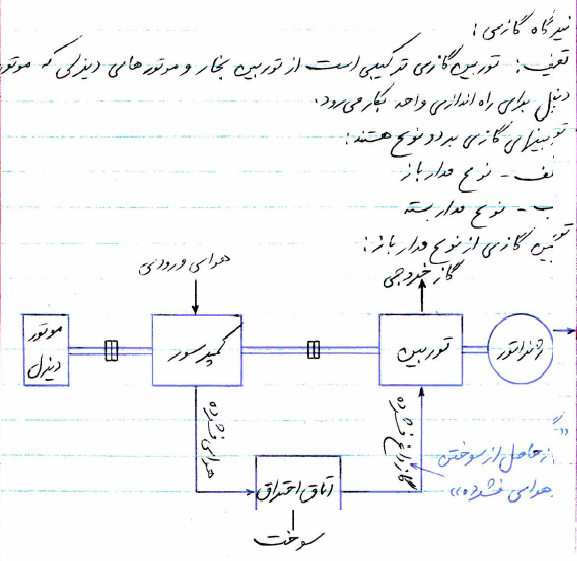 نیروگاه گازی :
تعریف : توربین گازی ترکیبی است از توربین بخار و موتورهای دیزلی که موتور
دیزل برای راه اندازی واحد بکار می‌رود.
توربینهای گازی بر دو نوع هستند :
الف - نوع مدار باز
ب - نوع مدار بسته
توربین گازی از نوع مدار باز :
هوای ورودی
گاز خروجی
موتور
دیزل
کمپرسور
توربین
ژنراتور
هوای فشرده
گاز داغ فشرده
حاصل از سوختن
هوای فشرده»
اتاق احتراق
سوخت